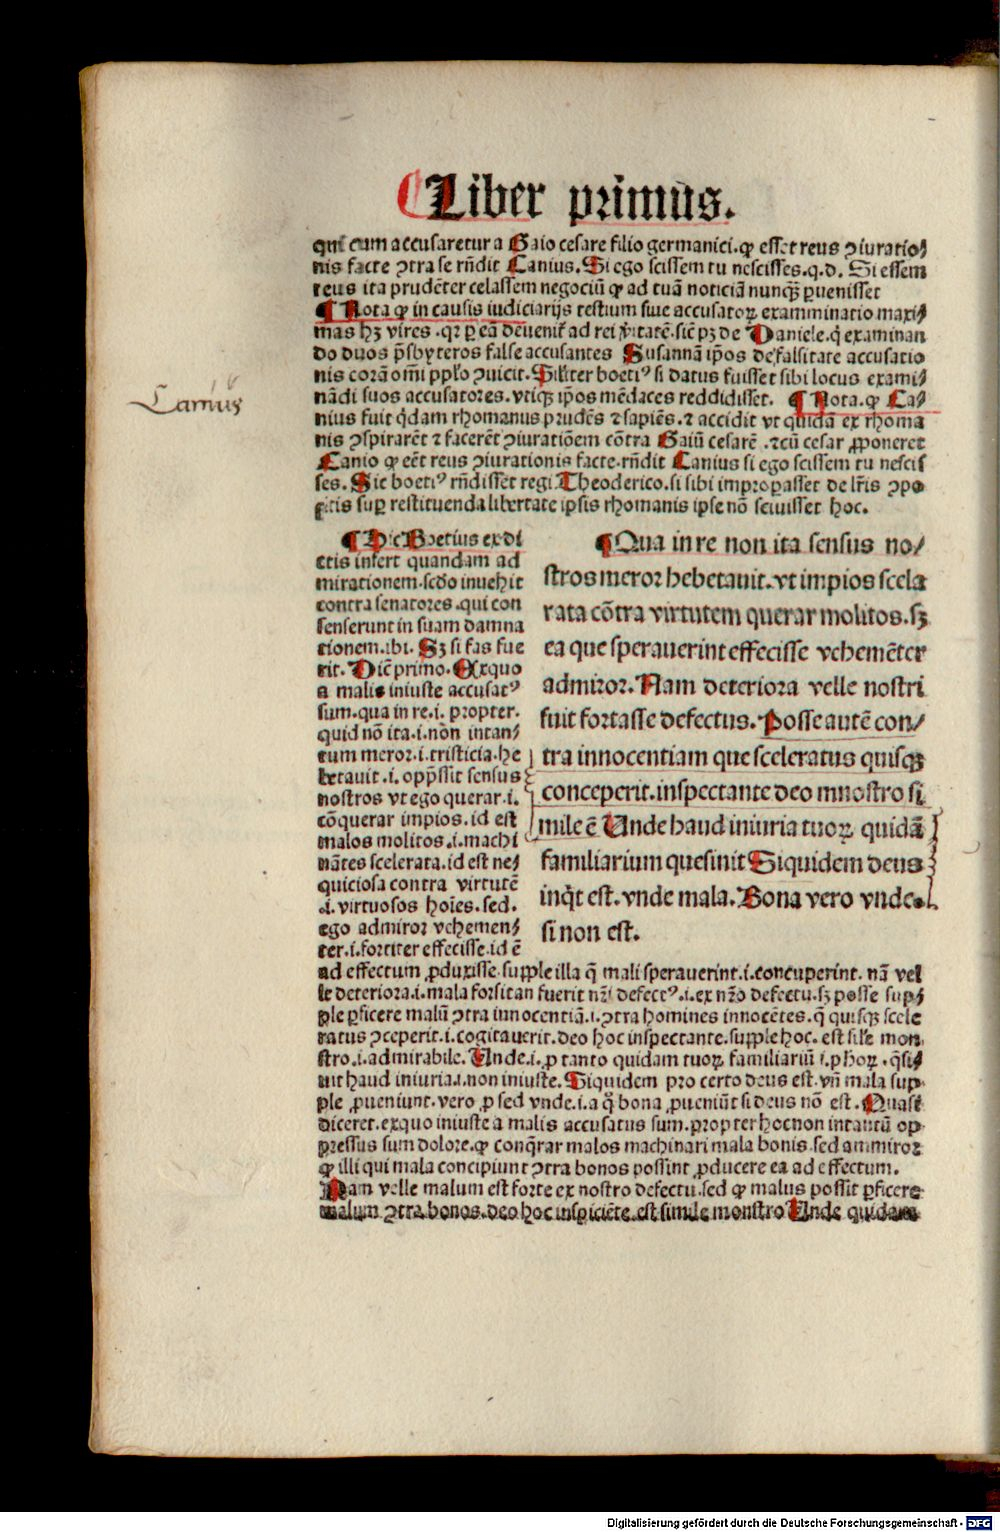 Liber primus.
qui cum accusaretur a Gaio cesare filio germanici. ꝙ esset reus ↄiuratio⸗
nis facte ↄtra se rñdit Canius. Si ego scissem tu nescisses. q.d. Si essem
reus ita prudēter celassem negociū ꝙ ad tuā noticiā nunqꝫ ꝑuenisset
¶ Nota ꝙ in causis iudiciarijs testium siue accusatoꝝ examminatio maxi⸗
mas hꝫ vires. qꝛ ꝑ eā deuenit̄ ad rei v̄itatē. sic̄ pꝫ de Daniele. q̇ examinan
do duos p̄sbyteros false accusantes Susannā ip̄os de falsitate accusatio
nis corā om̄i pplo ↄuicit. Silr̄iter boetiꝰ si datus fuisset sibi locus exami⸗
nādi suos accusatores. vtiqꝫ ip̄os mēdaces reddidisset. ¶ Nota. ꝙ Ca⸗
Canius
nius fuit q̇dam rhomanus prudēs ⁊ sapiēs. ⁊ accidit vt quidā ex rhoma
nis ↄspirarēt ⁊ facerēt ↄiuratiōem cōtra Gaiū cesarē. ⁊cū cesar ꝓponeret
Canio ꝙ eēt reus ↄiurationis facte. rñdit Canius si ego scissem tu nescis
ses. Sic boetiꝰ rñdisset regi Theoderico. si sibi improꝑasset de lr̄is ↄpo
sitis suꝑ restituenda libertate ipsis rhomanis ipse nō sciuisset hoc.
¶ Hic Boetius ex di
ctis infert quandam ad
mirationem. scd̄o inuehit
contra senatores. qui con
senserunt in suam damna
tionem. ibi. Sꝫ si fas fue
rit. Dic̄ primo. Exquo
a malis iniuste accusatꝰ
sum. qua in re .i. propter.
quid nō ita .i. non intan⸗
tum meror .i. tristicia. he
betauit .i. opp̄ssit sensus
nostros vt ego querar .i.
cōquerar impios. id est
malos molitos .i. machi
nātes scelerata. id est ne⸗
quiciosa contra virtutē
.i. virtuosos hoīes. sed.
ego admiror vehemen⸗
ter .i. fortiter effecisse. id ē
¶Qua in re non ita sensus no⸗
stros meror hebetauit. vt impios scela
rata cōtra virtutem querar molitos. sꝫ
ea que sperauerint effecisse vehemēter
admiror. Nam deteriora velle nostri
fuit fortasse defectus. Posse autē con⸗
tra innocentiam que sceleratus quisqꝫ
conceperit. inspectante deo mnostro si
mile ē Unde haud iniuria tuoꝝ quidā
familiarium quesinit Siquidem deus
inq̇t est. vnde mala. Bona vero vnde.
si non est.
ad effectum ꝓduxisse. supple illa q̄ mali sperauerint .i. concuperint. nā vel
le deteriora .i. mala forsitan fuerit nr̄i defectꝰ .i. ex nr̄o defectu. sꝫ posse sup⸗
ple ꝑficere malū ↄtra innocentiā .i. ↄtra homines innocētes. q̄ quisqꝫ scele
ratus ↄceperit .i. cogitauerit. deo hoc inspectante. supple hoc. est sil̄e mon
stro .i. admirabile. Unde .i. ꝓ tanto quidam tuoꝝ familiariū .i. ꝑhoꝝ. q̄si⸗
uit haud iniuria .i. non iniuste. Siquidem pro certo deus est. vñ mala sup
ple ꝓueniunt. vero ꝓ sed vnde .i. a q̊ bona ꝓueniūt si deus nō est. Quasi
diceret. exquo iniuste a malis accusatus sum. propter hoc non intantū op
pressus sum dolore. ꝙ conq̄rar malos machinari mala bonis. sed ammiror
ꝙ illi qui mala concipiunt ↄtra bonos possint ꝓducere ea ad effectum.
Nam velle malum est forte ex nostro defectu. sed ꝙ malus possit ꝑficere
malum ↄtra bonos. deo hoc inspiciēte. est simile monstro Unde quidam
Digitalisierung gefördert durch die Deutsche Forschungsgemeinschaft - DFG